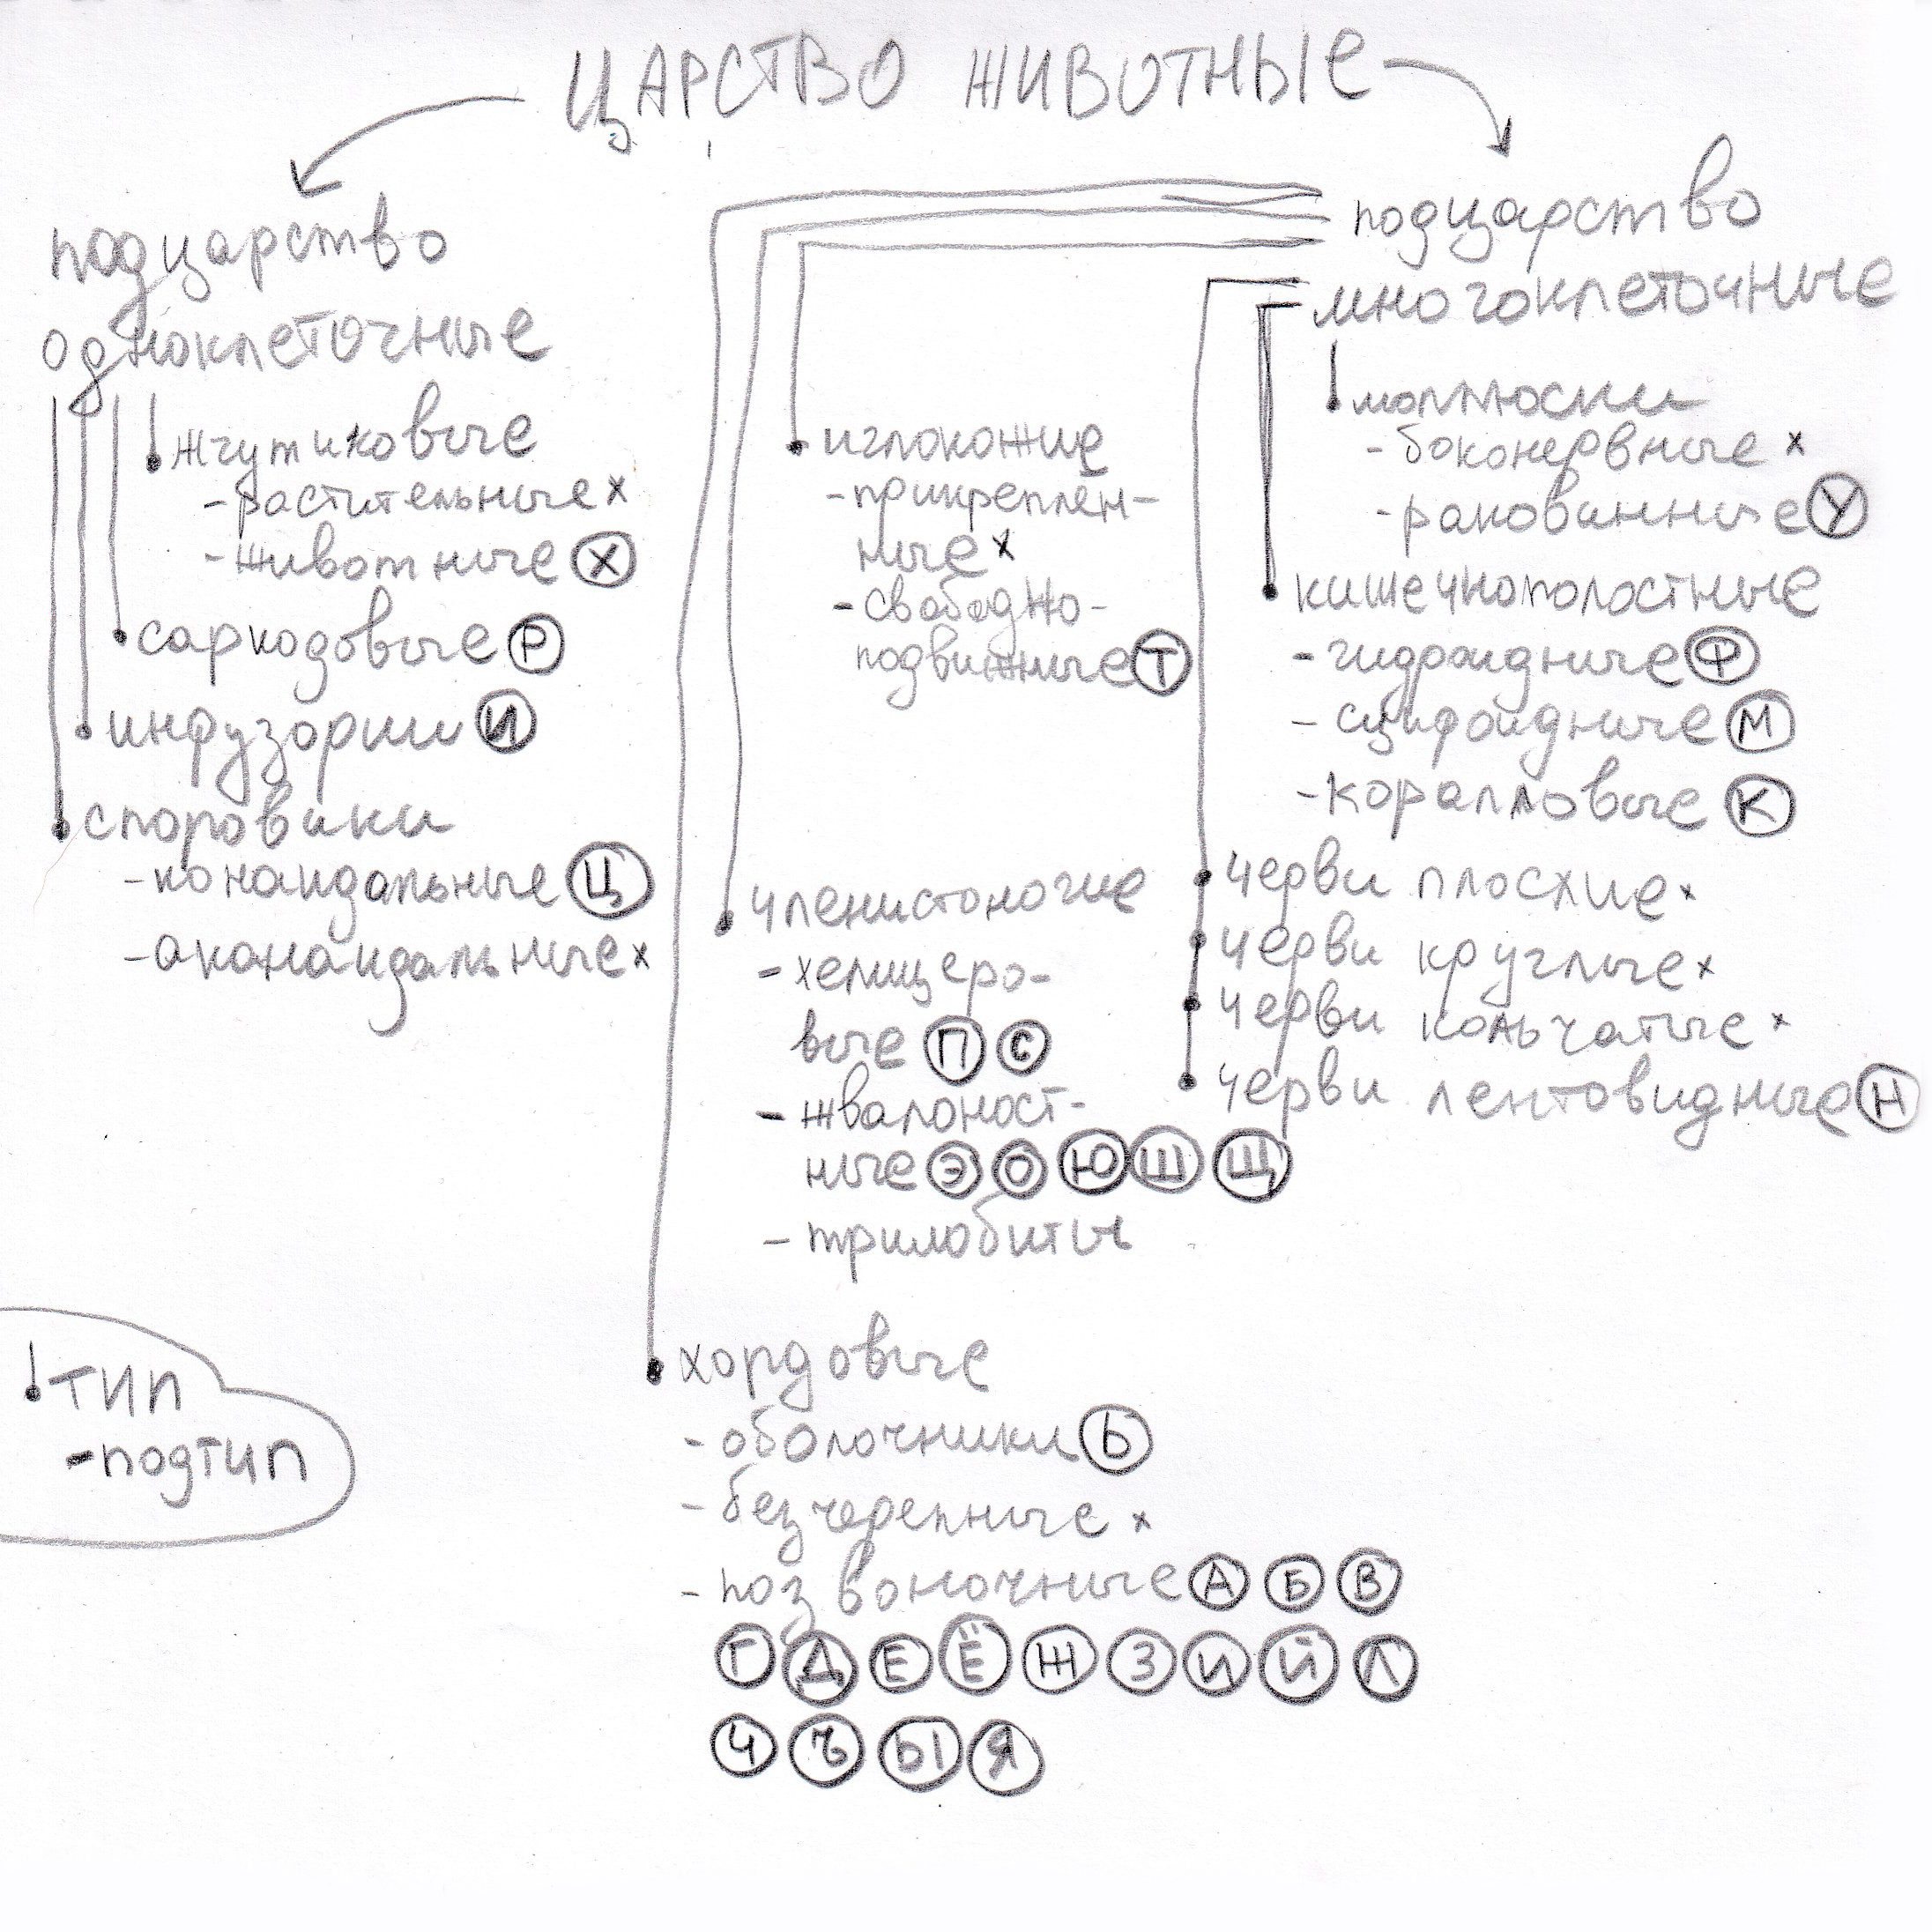 ЦАРСТВО ЖИВОТНЫЕ
подцарство
одноклеточные
жгутиковые
- растительные x
- животные Х
саркодовые Р
инфузории И
споровики
- коноидальные Ц
- аконоидальные x
подцарство
многоклеточные
моллюски
- боконервные x
- раковинные У
кишечнополостные
- гидроидные Ф
- сцифоидные М
- коралловые К
черви плоские x
черви круглые x
черви кольчатые x
черви лентовидные Н
иглокожие
- прикреплён-
ные x
- свободно-
подвижные Т
членистоногие
- хелицеро-
вые П С
- жвалоност-
ные Э О Ю Ш Щ
- трилобиты
хордовые
- оболочники Ь
- безчерепные x
- позвоночные А Б В
Г Д Е Ё Ж З И Й Л
Ч Ъ Ы Я
тип
- подтип